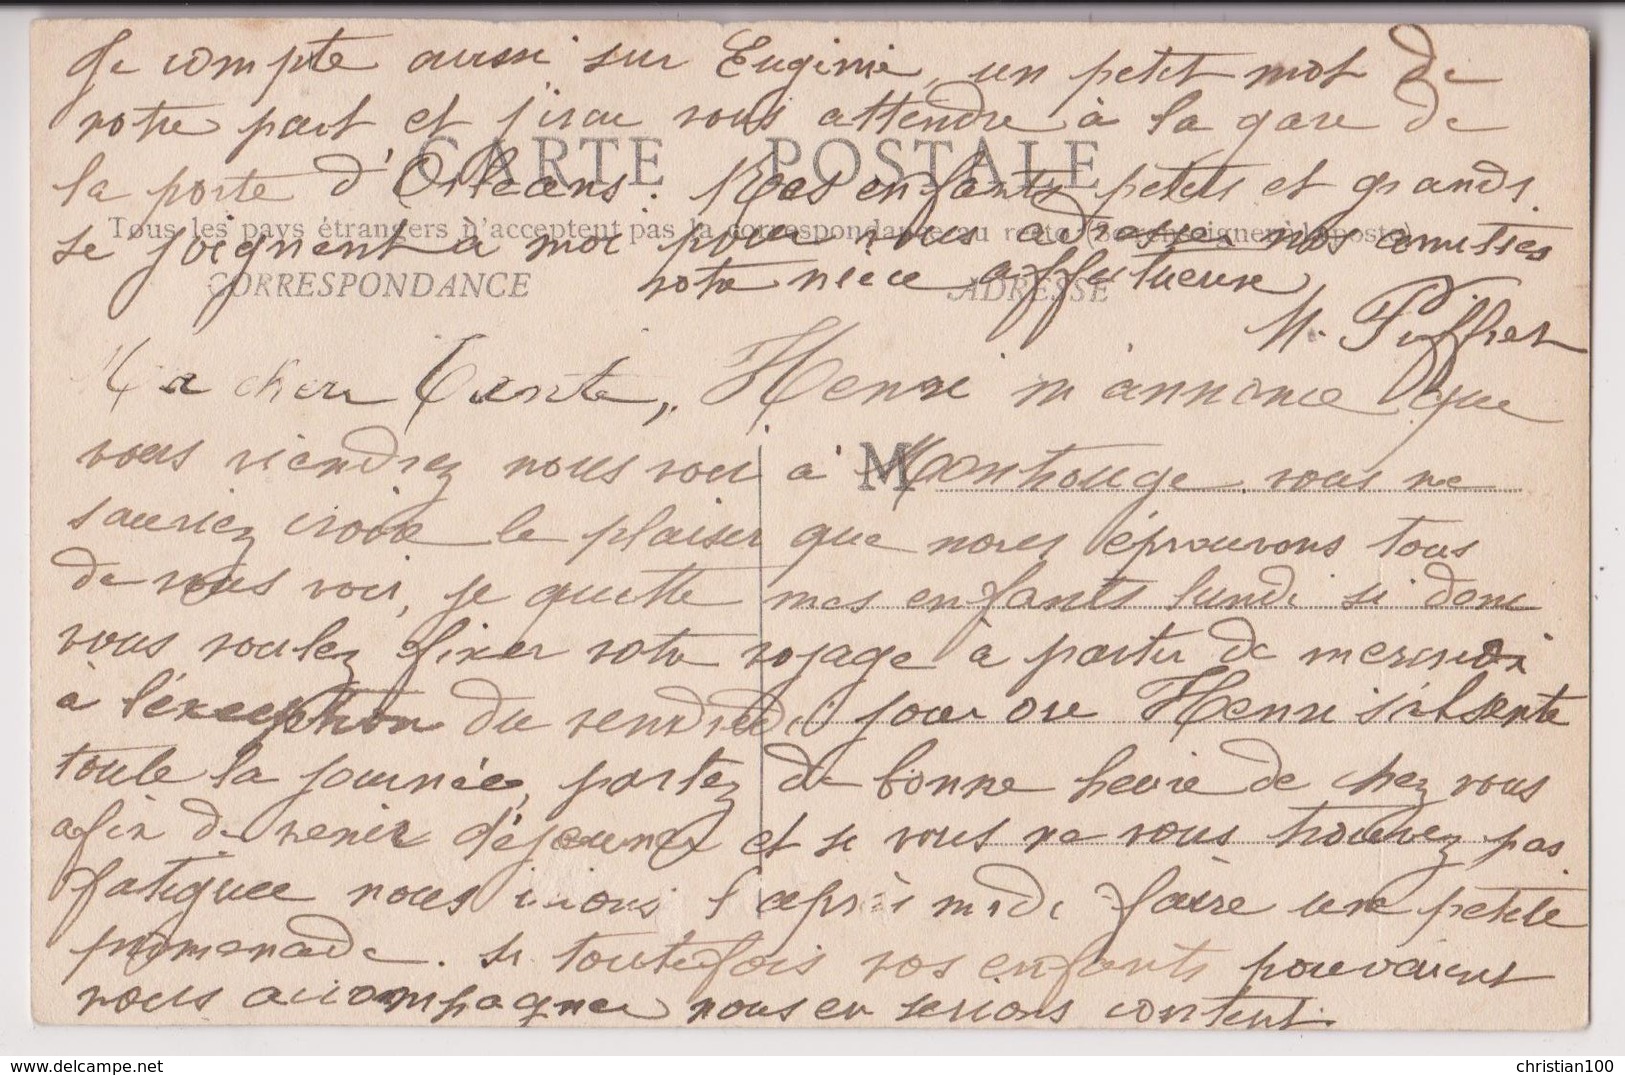 Je compte aussi sur Euginie, un petit mot de
votre part et j'irai vous attendre à la gare de
CARTE POSTALE
la porte d'Orléans. Mes enfants petits et grands
Tous les pays étrangers n'acceptent pas la correspondance au recto (Se renseigner à la poste)
se joignent à moi pour vous adresser nos amitiés
CORRESPONDANCE
ADRESSE
votre nièce affectueuse
M. Piffret
Ma cher Tante, Henri m'annonce que
vous viendrez nous voir à Montrouge vous ne
M
sauriez croire le plaisir que nous éprouvons tous
de vous voir, je quitte mes enfants lundi si donc
vous voulez fixer votre voyage à partir de mercredi
à l'éxception du vendredi jour ou Henri s'absente
toute la journée, partez de bonne heure de chez vous
afin de venir déjeuner et si vous ne vous trouvez pas
fatiguée nous irions l'après midi faire une petite
promenade. si toutefois vos enfants pouvaient
vous accompagner nous en serions content.
christian100
www.delcampe.net